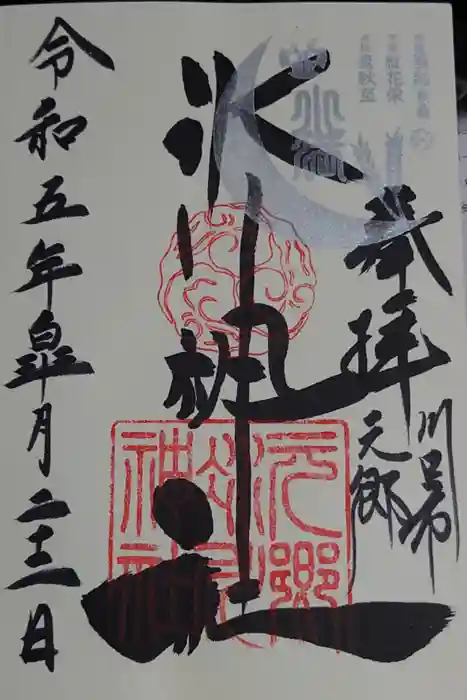 奉拝
川口市
元郷
氷川神社
元郷氷川神社
令和五年皐月二十二日